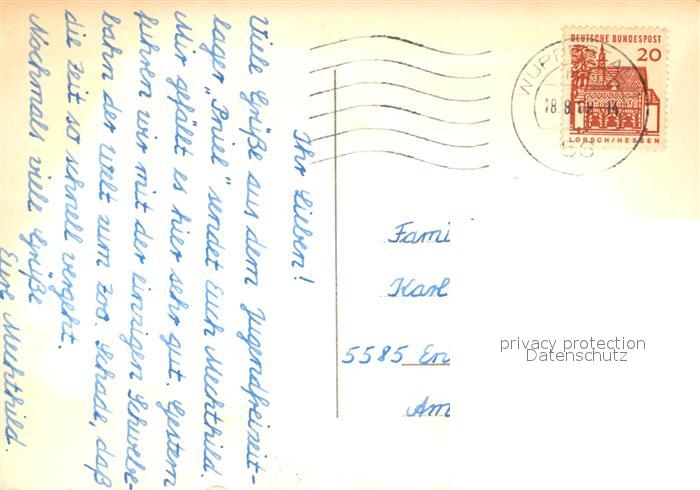 Ihr Lieben!
Viele Grüße aus dem Jugendfreizeit-
lager "Priel" sendet Euch Mechthild.
Mir gefällt es hier sehr gut. Gestern
fuhren wir mit der einzigen Schwebe-
bahn der Welt zum Zoo. Schade, daß
die Zeit so schnell vergeht.
Nochmals viele Grüße
Eure Mechthild.
DEUTSCHE BUNDESPOST
20
LORSCH/HESSEN
18.8
Fami
Karl
5585 En
Am
privacy protection
Datenschutz